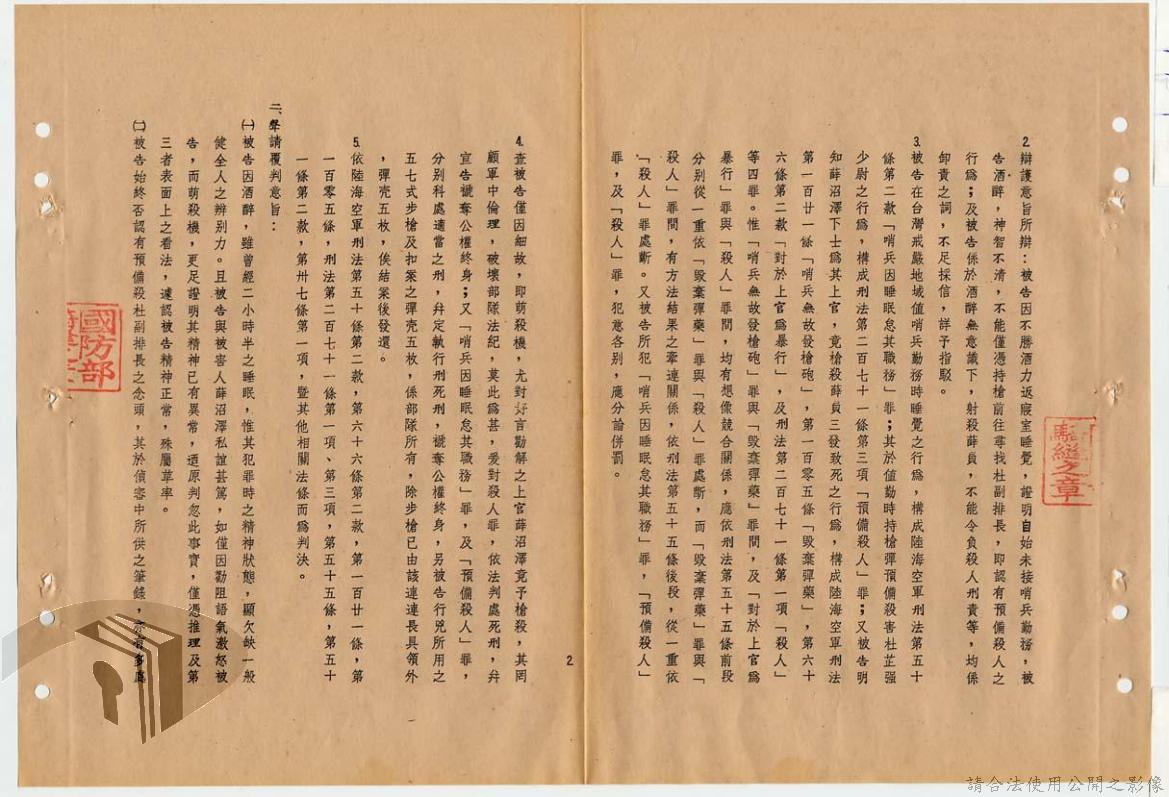 2.辯護意旨所辯：被告因不勝酒力返寢室睡覺，證明自始未接哨兵勤務，被
告酒醉，神智不清，不能僅憑持槍前往尋找杜副排長，即認有預備殺人之
行為；及被告係於酒醉無意識下，射殺薛員，不能令負殺人刑責等，均係
卸責之詞，不足採信，詳予指駁。
3.被告在台灣戒嚴地域值哨兵勤務時睡覺之行為，構成陸海空軍刑法第五十
條第二款「哨兵因睡眠怠其職務」罪；其於值勤時持槍彈預備殺害杜芷强
少尉之行為，構成刑法第二百七十一條第三項「預備殺人」罪；又被告明
知薛沼澤下士為其上官，竟槍殺薛員三發致死之行為，構成陸海空軍刑法
第一百廿一條「哨兵無故發槍砲」，第一百零五條「毀棄彈藥」，第六十
六條第二款「對於上官為暴行」，及刑法第二百七十一條第一項「殺人」
等四罪。惟「哨兵無故發槍砲」罪與「毀棄彈藥」罪間，及「對於上官為
暴行」罪與「殺人」罪間，均有想像競合關係，應依刑法第五十五條前段
分別從一重依「毀棄彈藥」罪與「殺人」罪處斷，而「毀棄彈藥」罪與「
殺人」罪間，有方法結果之牽連關係，依刑法第五十五條後段，從一重依
「殺人」罪處斷。又被告所犯「哨兵因睡眠怠其職務」罪，「預備殺人」
罪，及「殺人」罪，犯意各別，應分論併罰。
2
4.查被告僅因細故，即萌殺機，尤對好言勸解之上官薛沼澤竟予槍殺，其罔
顧軍中倫理，破壞部隊法紀，莫此為甚，爰對殺人罪，依法判處死刑，并
宣告褫奪公權終身；又「哨兵因睡眠怠其職務」罪，及「預備殺人」罪，
分別科處適當之刑，并定執行刑死刑，褫奪公權終身，另被告行兇所用之
五七式步槍及扣案之彈壳五枚，係部隊所有，除步槍已由該連連長具領外
，彈壳五枚，俟結案後發還。
5.依陸海空軍刑法第五十條第二款，第六十六條第二款，第一百廿一條，第
一百零五條，刑法第二百七十一條第一項、第三項，第五十五條，第五十
一條第二款，第卅七條第一項，暨其他相關法條而為判決。
二、聲請覆判意旨：
㈠被告因酒醉，雖曾經二小時半之睡眠，惟其犯罪時之精神狀態，顯欠缺一般
健全人之辨別力。且被告與被害人薛沼澤私誼甚篤，如僅因勸阻語氣激怒被
告，而萌殺機，更足證明其精神已有異常，迺原判忽此事實，僅憑推理及第
三者表面上之看法，遽認被告精神正常，殊屬草率。
㈡被告始終否認有預備殺杜副排長之念頭，其於偵審中所供之筆錄，亦有多處
國防部
騎縫之章
請合法使用公開之影像